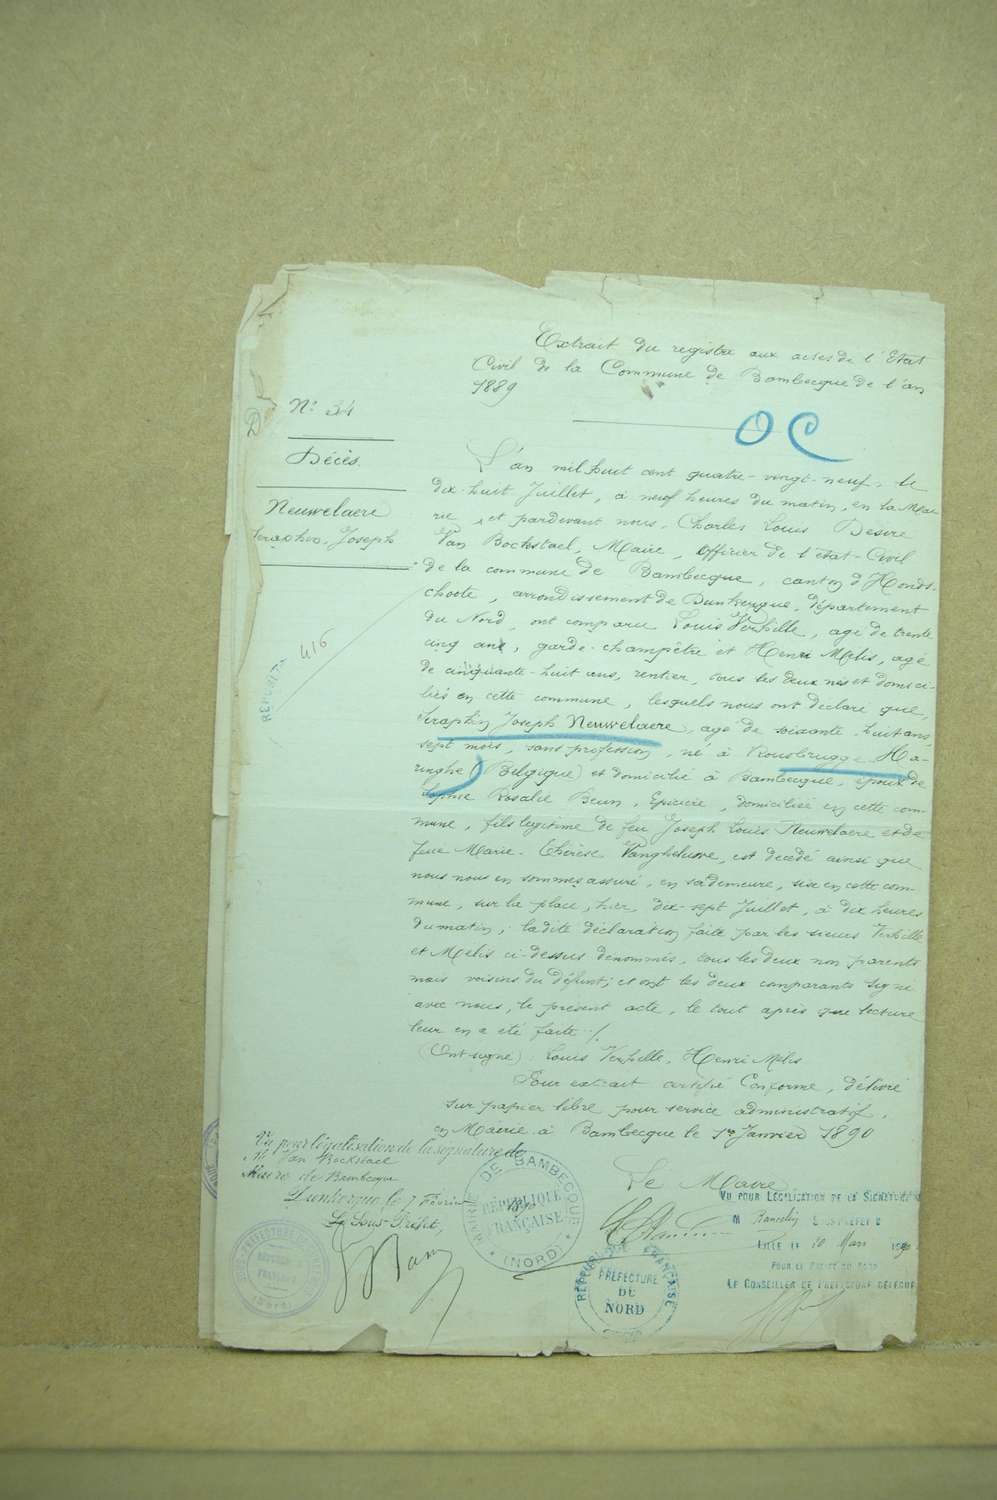 Extrait du registre aux actes de l'Etat
Civil de la Commune de Bambecque de l'an
1889
OC
D
N° 34
Décès.
Neuwelaere
Seraphin, Joseph
416
L'an mil huit cent quatre-vingt-neuf, le
dix-huit Juillet, à neuf heures du matin, en la Mai
rie, et pardevant nous, Charles Louis Désiré
Van Bockstael, Maire, officier de l'état-Civil
de la commune de Bambecque, canton d'Honds-
choote, arrondissement de Dunkerque, département
du Nord, ont comparu Louis Verhille, agé de trente
cinq ans, garde-champêtre et Henri Melis, agé
de cinquante-huit ans, rentier, tous les deux nés et domici-
liés en cette commune, lesquels nous ont déclaré que,
Seraphin Joseph Neuwelaere, agé de soixante-huit ans,
sept mois, sans profession, né à Rousbrugge Ha-
ringhe (Belgique) et domicilié à Bambecque, époux de
Rosalie Beun, Epicière, domiciliée en cette com-
mune, fils légitime de feu Joseph Louis Neuwelaere et de
feue Marie-Thérèse Vangheluwe, est décédé ainsi que
nous nous en sommes assuré, en sa demeure, sise en cette com-
mune, sur la place, hier, dix-sept Juillet, à dix heures
du matin; ladite déclaration faite par les sieurs Verhille
et Melis ci-dessus dénommés, tous les deux non parents
mais voisins du défunt; et ont les deux comparants signé
avec nous, le présent acte, le tout après que lecture
leur en a été faite ./.
(Ont signé): Louis Verhille, Henri Melis
Pour extrait certifié Conforme, délivré
sur papier libre pour service administratif.
en Mairie à Bambecque le 1er Janvier 1890
Le Maire
Vu pour légalisation de la signature de
M. Van Bockstael
Maire de Bambecque
Dunkerque, le 7 Février 1890
Le Sous-Préfet,
MAIRIE DE BAMBECQUE
RÉPUBLIQUE
FRANÇAISE
(NORD)
RÉPUBLIQUE FRANÇAISE
PRÉFECTURE
DU
NORD
VU POUR LÉGALISATION DE LA SIGNATURE
M SOUS-PRÉFET
LILLE LE 10 Mars 1890
POUR LE PRÉFET DU NORD
LE CONSEILLER DE PRÉFECTURE DÉLÉGUÉ